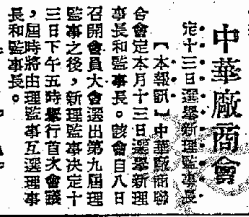 中華廠商會
定十三日選舉新理監事長
【本報訊】中華廠商聯
合會定本月十三日選舉新理
事長和監事長。該會自八日
召開會員大會選出第九屆理
監事之後，新理監事決定十
三日下午五時舉行首次會議
，屆時將由理監事互選理事
長和監事長。